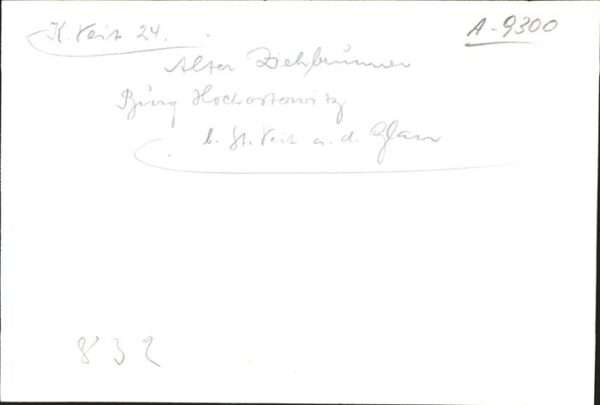 K Veit 24.
A-9300
Alter Ziehbrunnen
Burg Hochosterwitz
b. St. Veit a. d. Glan
832